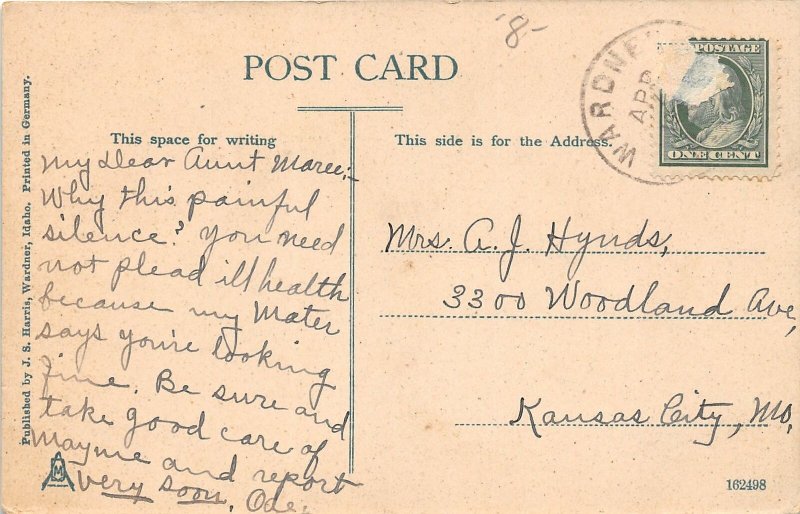 '8-
POST CARD
WARDNE
APR
POSTAGE
ONE CENT
This space for writing
This side is for the Address.
My Dear Aunt Maree:-
Why this painful
silence? You need
not plead ill health
because my Mater
says you're looking
fine. Be sure and
take good care of
Mayme and report
very soon,
Mrs. A. J. Hynds,
3300 Woodland Ave,
Kansas City, Mo,
Published by J. S. Harris, Wardner, Idaho. Printed in Germany.
M
162498